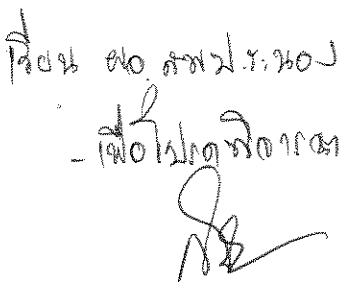 เรียน ผอ.สพป.ระนอง
- เพื่อโปรดพิจารณา